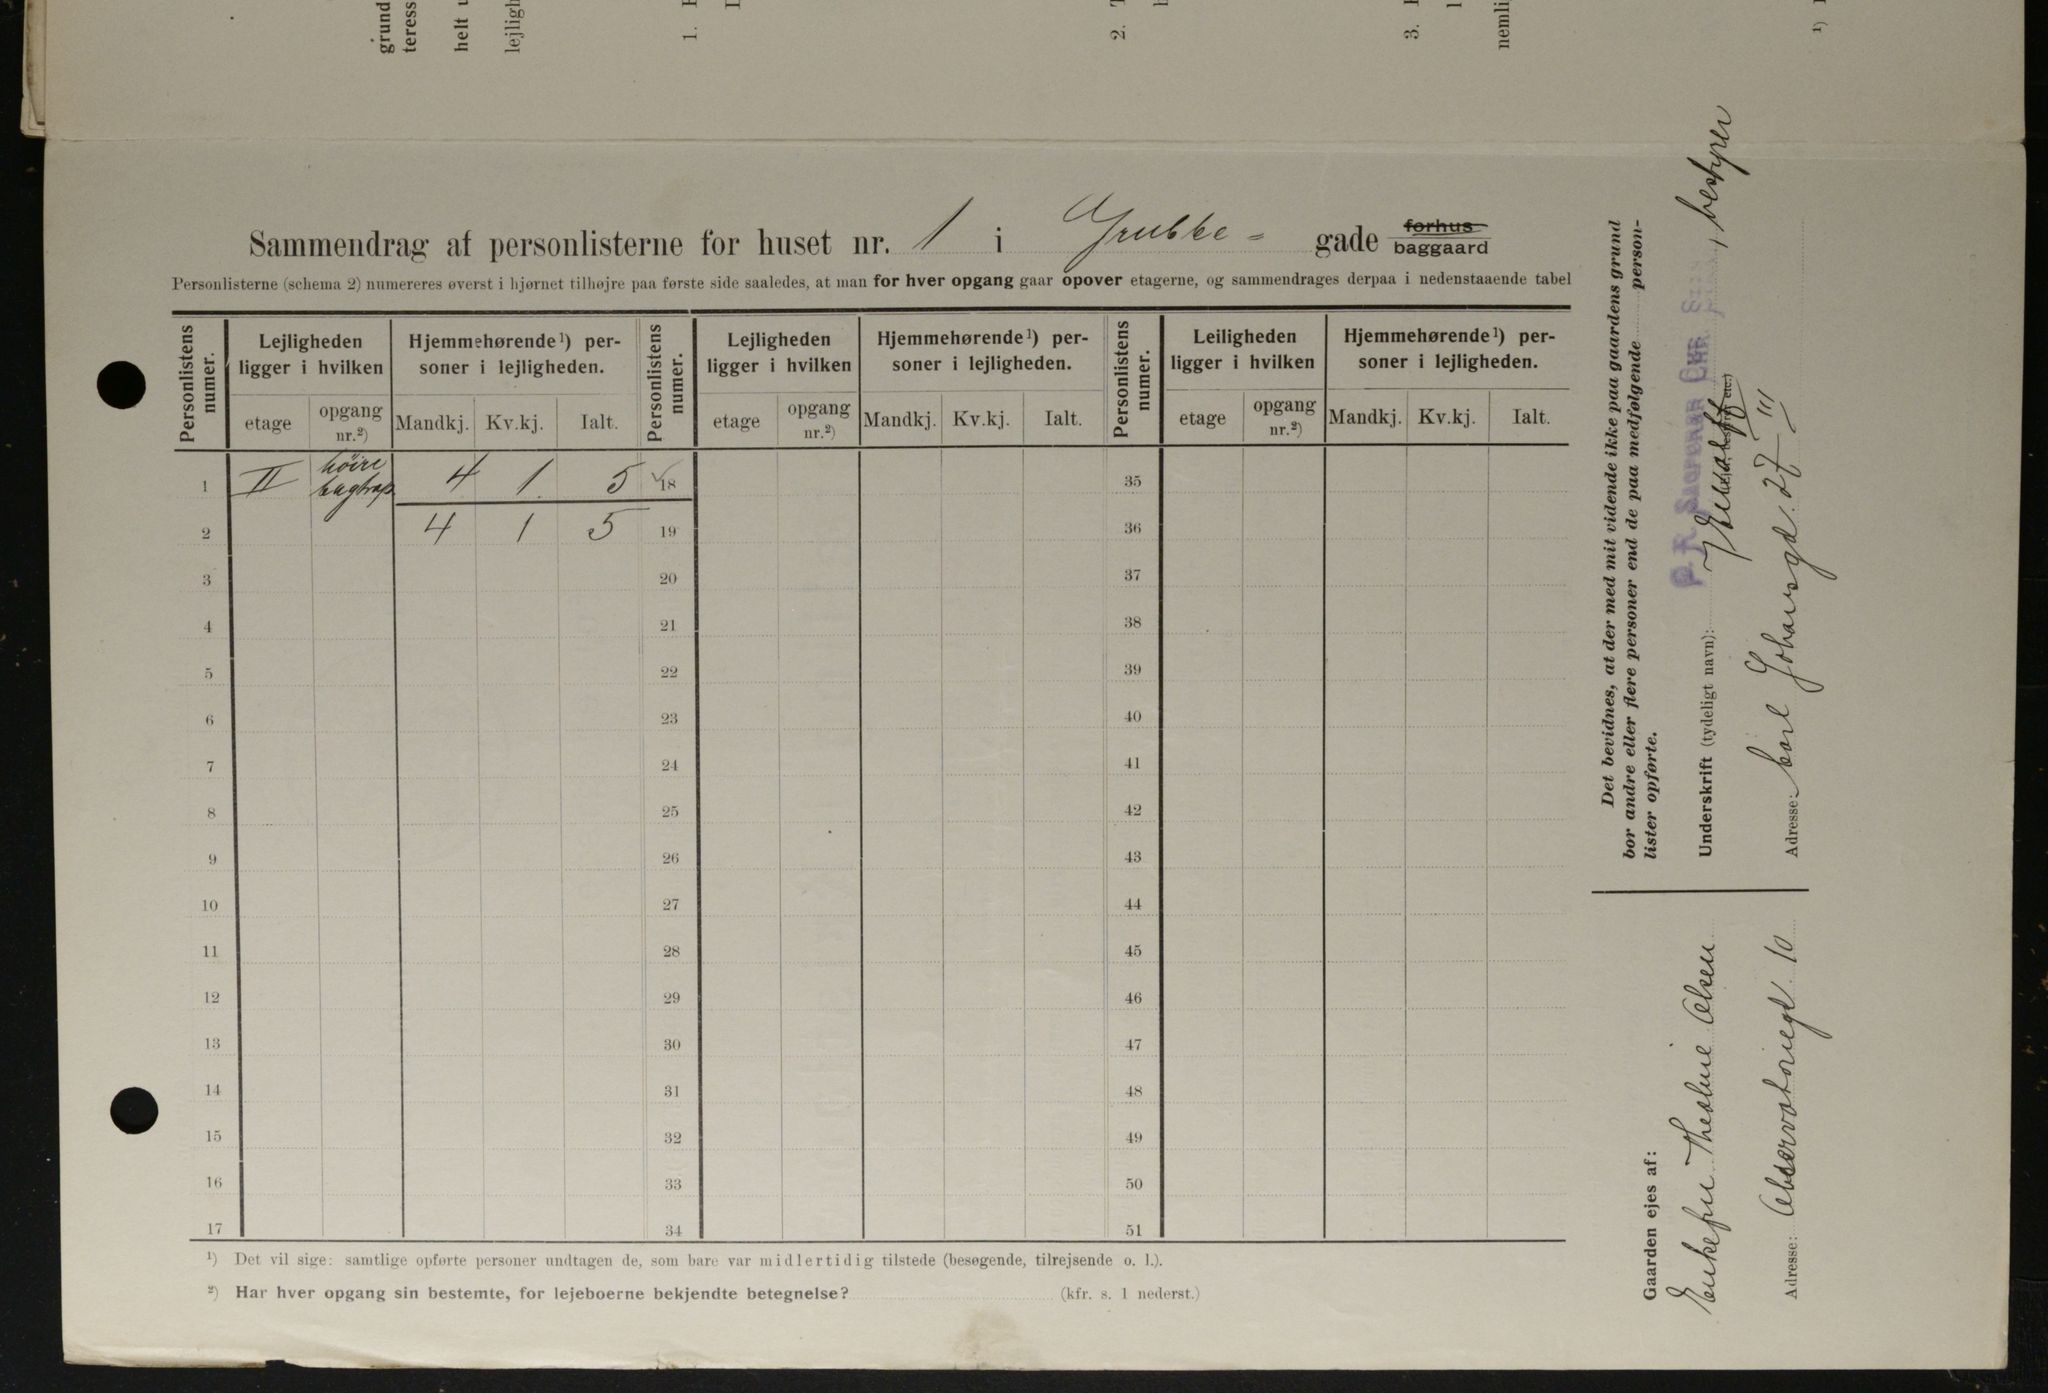 grund
teress
helt u
lejligh
1.
2.
3.
nemli
1)
Sammendrag af personlisterne for huset nr. 1 i Grubbe- gade forhus baggaard
Personlisterne (schema 2) numereres øverst i hjørnet tilhøjre paa første side saaledes, at man for hver opgang gaar opover etagerne, og sammendrages derpaa i nedenstaaende tabel
Personlistens numer. Lejligheden ligger i hvilken Hjemmehørende1) personer i lejligheden. Personlistens numer. Lejligheden ligger i hvilken Hjemmehørende1) personer i lejligheden. Personlistens numer. Leiligheden ligger i hvilken Hjemmehørende1) personer i lejligheden.
etage opgang nr.2) Mandkj. Kv.kj. Ialt. etage opgang nr.2) Mandkj. Kv.kj. Ialt. etage opgang nr.2) Mandkj. Kv.kj. Ialt.
1 II höire bagtrap 4 1 5 18 35
2 4 1 5 19 36
3 20 37
4 21 38
5 22 39
6 23 40
7 24 41
8 25 42
9 26 43
10 27 44
11 28 45
12 29 46
13 30 47
14 31 48
15 32 49
16 33 50
17 34 51
1) Det vil sige: samtlige opførte personer undtagen de, som bare var midlertidig tilstede (besøgende, tilrejsende o. l.).
2) Har hver opgang sin bestemte, for lejeboerne bekjendte betegnelse? (kfr. s. 1 nederst.)
Det bevidnes, at der med mit vidende ikke paa gaardens grund
bor andre eller flere personer end de paa medfølgende person-
lister opførte.
Underskrift (tydeligt navn): bestyrer
Adresse: Carl Johansgd. 27 III
Gaarden ejes af:
Enkefru Thealine Olsen
Adresse: Observatoriegt. 10